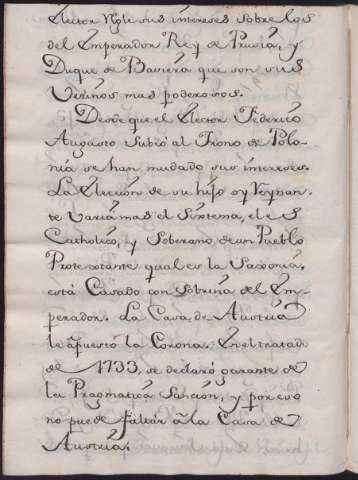 Elector Rejle sus intereses sobre los
del Emperador Rey de Prusia, y
Duque de Baviera que son sus
Vecinos mas poderosos.
Desde que el Elector Federico
Augusto Subió al Trono de Polo-
nia se han mudado sus intereses.
La Elección de su hijo oy Reynan-
te varia mas el Sistema, el es
Catholico, y Soberano de un Pueblo
Protextante qual es la Saxonia,
está Casado con Sobrina del Em-
perador. La Casa de Austria
le apuesto la Corona. En el tratado
de 1733, se declaró garante de
la Pragmatica Sanción, y por eso
no puede faltar à la Casa de
Austria.